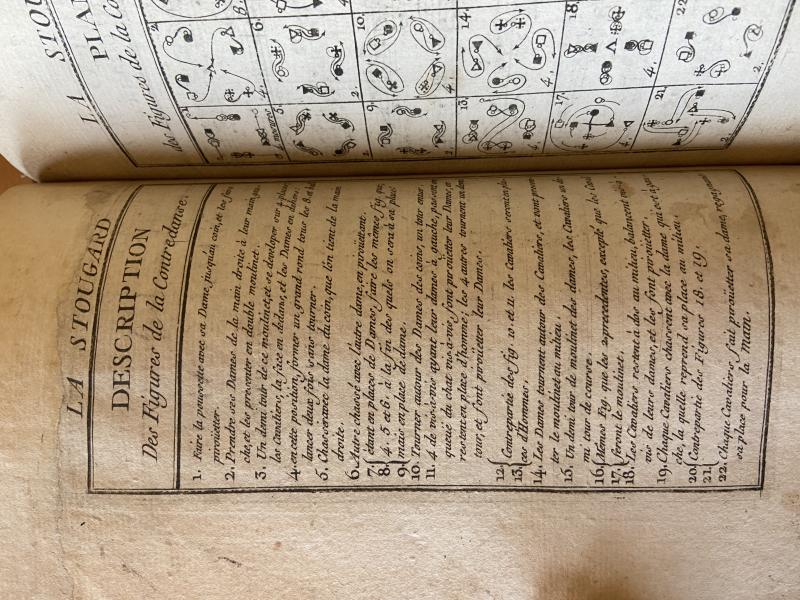 LA STOUGARD
DESCRIPTION
Des Figures de la Contredanse.
1. Faire la poucette avec sa Dame, jusqu'au coin, et les faire
pirouetter.
2. Prendre ses Dames de la main droite à leur main
che, et les presenter en double moulinet.
3. Un demi tour de ce moulinet, et se developer sur 4
les Cavaliers, la face en dedans, et les Dames en dehors.
4. en cette position, former un grand rond tous les 8. et ba
lancer deux fois sans tourner.
5. Chasser avec la dame du coin, que l'on tient de la main
droite.
6. Autre chassé avec l'autre dame, en pirouettant.
7. étant en places de Dames, faire les mêmes fig. que
8. 4. 5 et 6. à la fin des quels on sera à sa place
9. mais en place de dame.
10. Tourner autour des Dames des coins un tour
11. 4 de vis-à-vis ayant leur dames à gauche, passent en
queuë du chat vis-à-vis, font pirouëtter leur Dame, et
restent en place d'homme; les 4 autres tournent un demi
tour, et font pirouëtter leur Dames.
12. Contrepartie des fig. 10. et 11. les Cavaliers seront en place
13. es d'Hommes.
14. Les Dames tournent autour des Cavaliers, et vont presen
ter le moulinet au milieu.
15. Un demi tour de moulinet des dames, les Cavaliers un de
mi tour de course.
16. Mêmes Fig. que les 2 precedentes, excepté que les Cava
17. feront le moulinet.
18. Les Cavaliers restent à dos au milieu, balancent vis-à-
vis de leurs dames, et les font pirouëtter.
19. Chaque Cavaliers chassent avec la dame qui est à gau
che, la quelle reprend sa place au milieu.
20. Contrepartie des Figures 18. et 19.
21.
22. Chaque Cavaliers, fait pirouëtter sa dame,
sa place pour la main.
LA STOU
PLAN
des Figures de la Co
1. 2.
5. 6.
9. 10.
13. 14.
17. 18.
21. 22